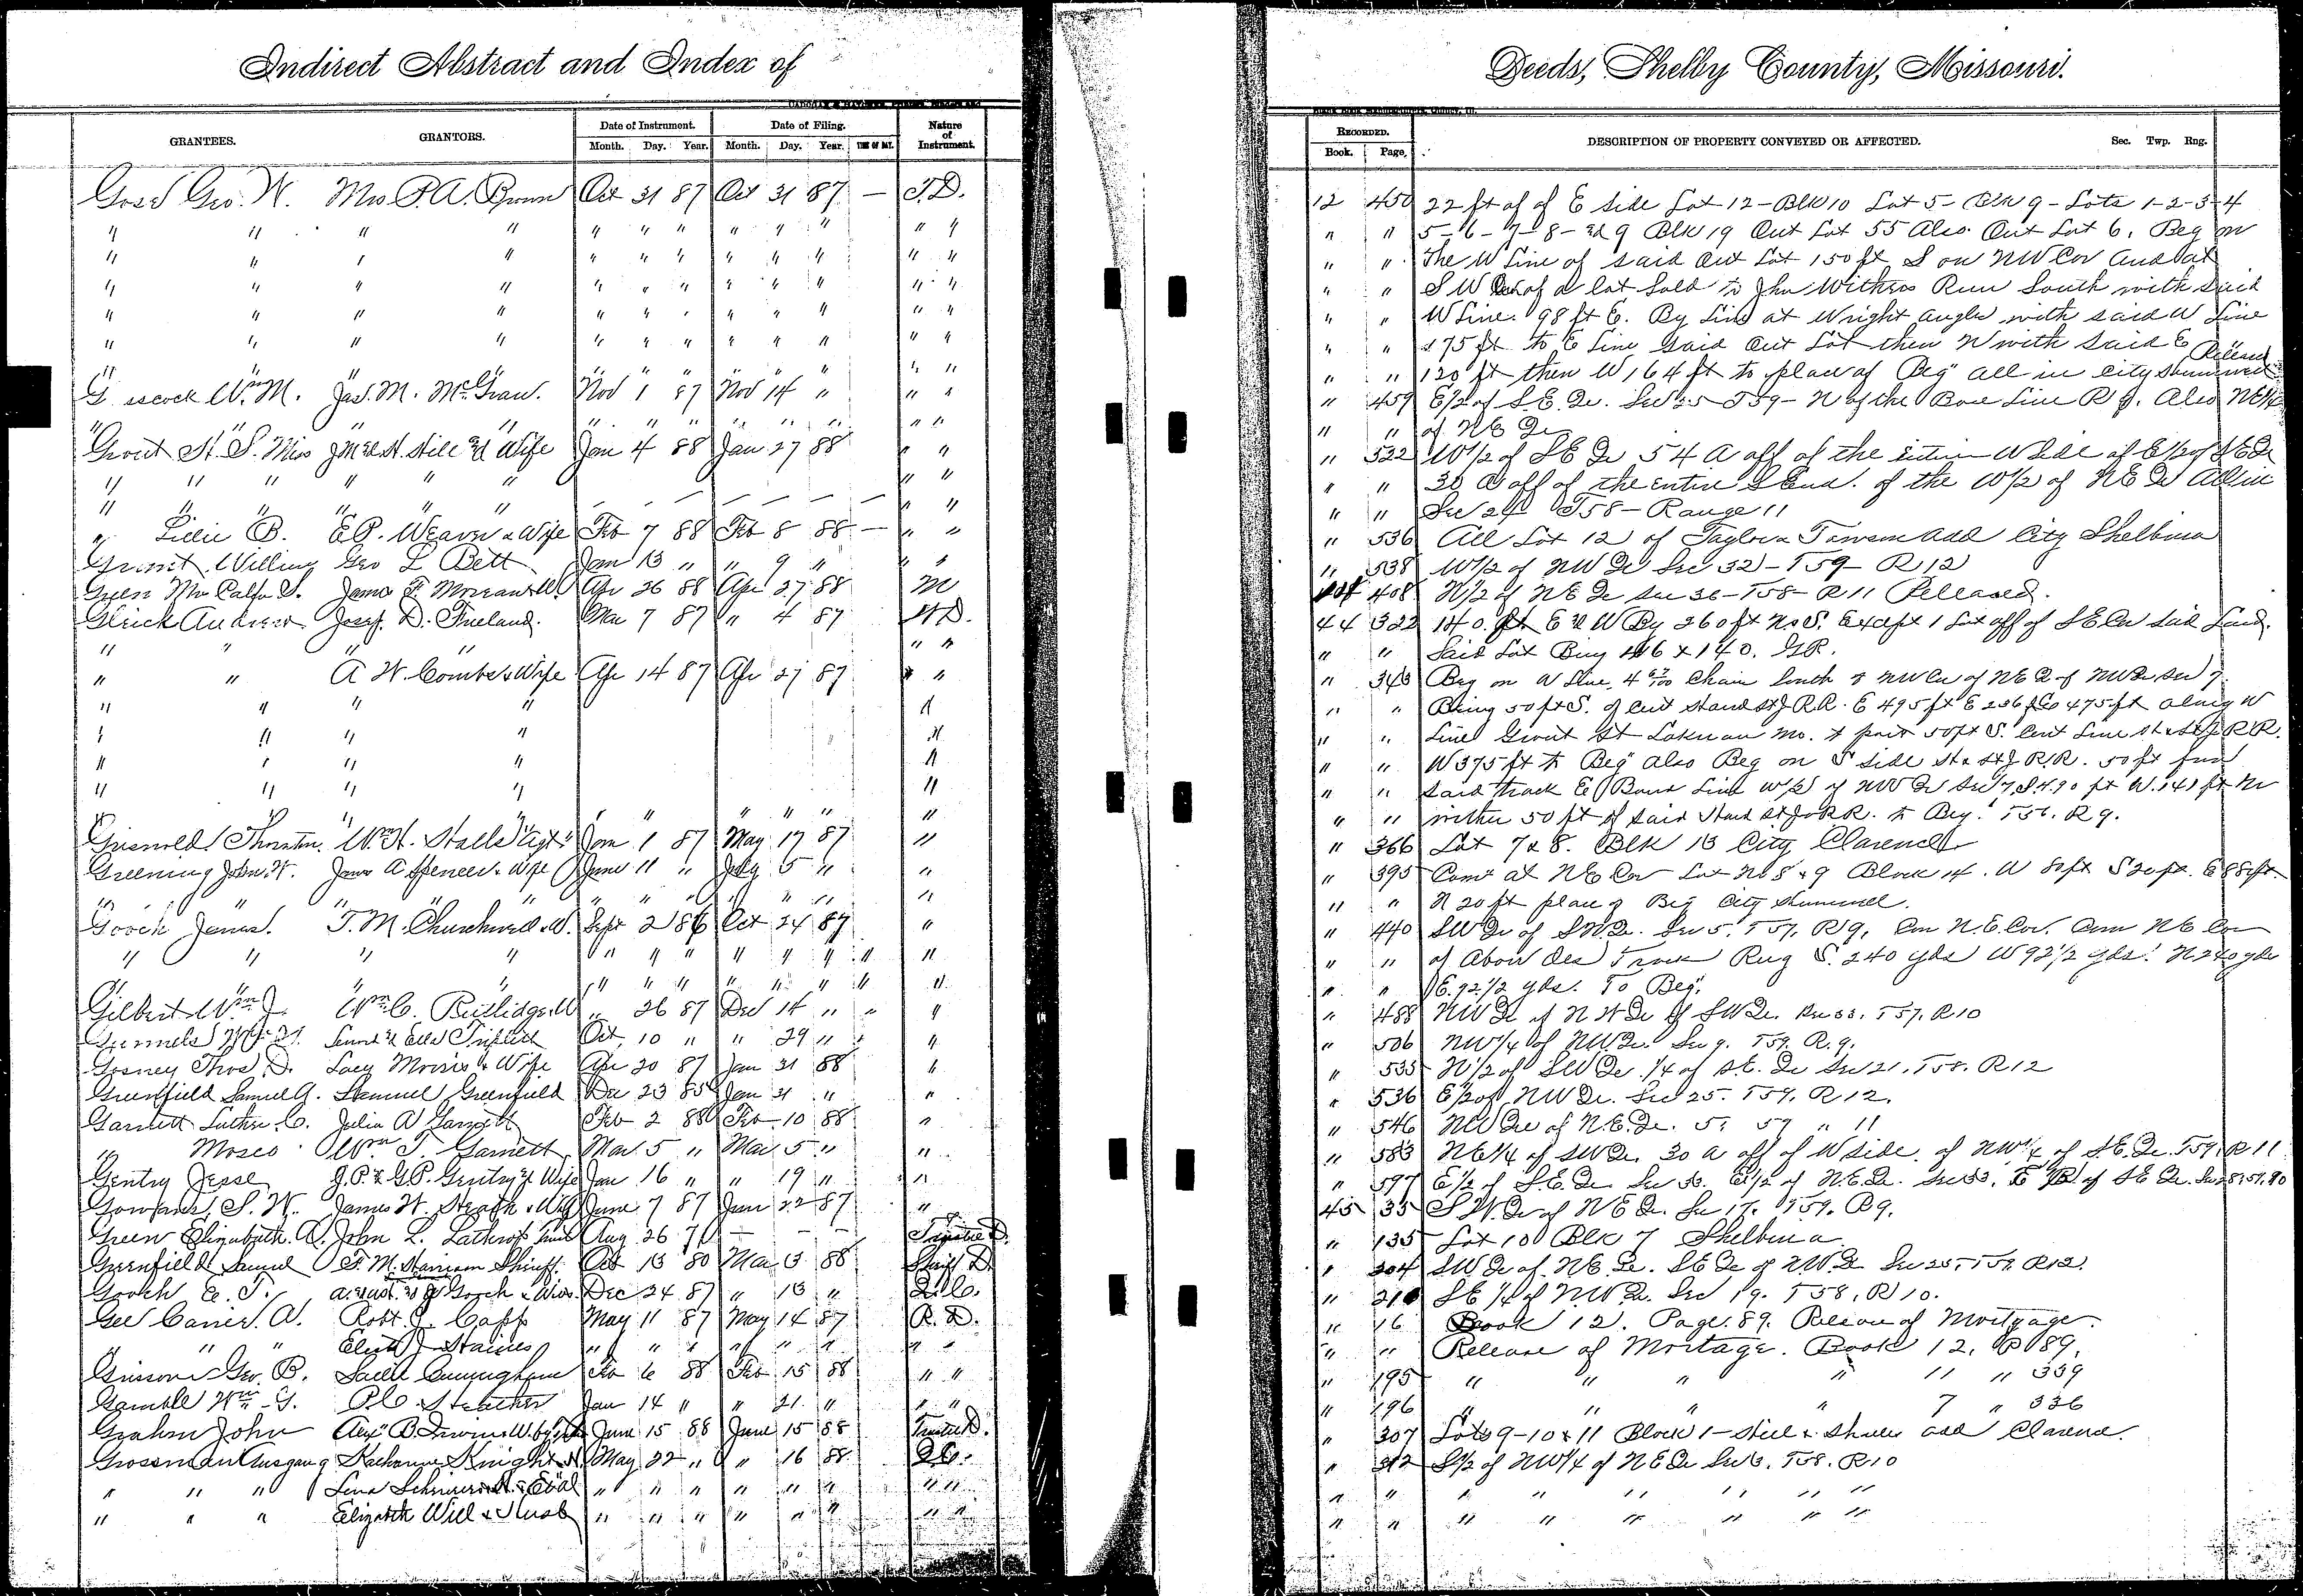 Indirect Abstract and Index of
Deeds, Shelby County, Missouri.
GRANTEES. GRANTORS. Date of Instrument. Date of Filing. Nature of Instrument.
Month. Day. Year. Month. Day. Year. TIME OF DAY.
RECORDED. DESCRIPTION OF PROPERTY CONVEYED OR AFFECTED. Sec. Twp. Rng.
Book. Page.
Geo. W. Mrs P. A. Oct 31 87 Oct 31 87 — T.D. 12 450 22 ft of of E Side Lot 12 - Blk 10 Lot 5 - Blk 9 - Lots 1-2-3-4
" " " " " " " " " " " " " " 5-6-7-8- & 9 Blk 19 Out Lot 55 Also. Out Lot 6. Beg on
" " " " " " " " " " " " " " The W Line of said Out Lot 150 ft S on NW Cor And at
" " " " " " " " " " " " " " S W Cor of a lot Sold to Jhn Withers Run South with Said
" " " " " " " " " " " " " " W Line. 98 ft E. By Line at Wright angles with said W Line
" " " " " " " " " " " " " " 175 ft to E Line Said Out Lot then N with Said E
" " " " " " " " " " " " 120 ft then W 164 ft to place of Beg all in City Released
G scock Wm. M. Jas. M. McGraw. Nov 1 87 Nov 14 " " " " 459 E 1/2 of S.E. Qr. Sec 25 T59 - N of the Base Line R 9. Also NE 1/4
" " " " " " " " " " " " of N E Qr
St. S. Miss Hill & Wife Jan 4 88 Jan 27 88 " " " 522 W 1/2 of S E Qr 54 A off of the entire W Side of E 1/2 of S E Qr
" " " " " " " " " 30 A off of the entire S End. of the W 1/2 of N E Qr All in
" " " " " " " " " Sec 24 T58 - Range 11
" Lillie B. E. P. Weaver & Wife Feb 7 88 Feb 8 88 — " " " 536 All Lot 12 of Taylor & Towson add City Shelbina
Willing Geo L Bett Jan 13 " " 9 " " " " 538 W 1/2 of NW Qr Sec 32 - T59 - R12
Green James F. Apr 26 88 Apr 27 88 M 408 N 1/2 of N E Qr Sec 36 - T58 - R11 Released.
Glrick Andrew Josep. D. Freeland. Mar 7 87 " 4 87 W D. 44 322 140. ft E & W By 260 ft N & S. Except 1 Lot off of S E Cor said Land.
" " " " " " " Said Lot Being 46 x 140. G.R.
" " A W. Combs & Wife Apr 14 87 Apr 27 87 " " " 343 Beg on W Line, 4 Chain South of NW Cor of NE Q of NW Qr Sec 7.
" " " " " " " Being 50 ft S. of Cent Hand St J R.R. E 495 ft E 236 ft 475 ft along W
" " " " " " " Line Grout St Lakenan Mo. to point 50 ft S. Cent Line H & St J R.R.
" " " " " " " W 375 ft to Beg also Beg on S Side H & St J R.R. 50 ft from
" " " " " " " said track E Bound Line W 1/2 of NW Qr Sec 7. S 490 ft W. 141 ft
" " " " " " " " " " " within 50 ft of said Hand St J & R.R. to Beg. T57. R 9.
Griswold Thornton. W. H. Stalls Agt Jan 1 87 May 17 87 " " 366 Lot 7 & 8. Blk 13 City Clarence
Greening John. W. James A Spencer & Wife June 11 " July 5 " " " 395 Com at N E Cor Lot No 8 & 9 Block 14. W 88 ft S 20 ft. E 88 ft.
" " " " " " " " " " " " N 20 ft place of Beg City
Gooch James. T. M. Churchwell & W. Sept 2 86 Oct 24 87 " " 440 SW Qr of SW Qr. Sec 5. T57. R9. Com N.E. Cor. Com NE Cor
" " " " " " " " " " " " " " of Above Des Track Rug S. 240 yds W 92 1/2 yds. N 240 yds
" " " " " " " " " " " " E. 92 1/2 yds. To Beg.
Gilbert Wm J. Wm C. Rutlidge & W " 26 87 Dec 14 " " " " 488 NW Qr of N W Qr of SW Qr. Sec 33. T57. R10
Lenord & Ella Triplett Oct 10 " " 29 " " " 506 NW 1/4 of NW Qr. Sec 9. T59. R. 9.
Gosney Thos. D. Lacy Morris & Wife Apr 20 87 Jan 31 88 " " 535 N 1/2 of SW Qr. 1/4 of S.E. Qr Sec 21. T58. R12
Greenfield Samuel A. Samuel Greenfield Dec 23 85 Jan 31 " " " 536 E 1/2 of NW Qr. Sec 25. T57. R12.
Garnett Luther. C. Julia A Garnett Feb 2 88 Feb. 10 88 " " 546 NW Qr of N.E. Qr. 5. 57 " 11
" Moses Wm T. Garnett Mar. 5 " Mar 5 " " " 583 N E 1/4 of SW Qr. 30 A off of W Side of NW 1/4 of S.E. Qr. T59. R11
Gentry Jesse J. P. & G. P. Gentry & Wife Jan 16 " " 19 " " " 597 E 1/2 of S.E. Qr Sec 33. E 1/2 of N.E. Qr. Sec 33. E 1/2 of S E Qr. Sec 28. 57. 10
S. W. James W. & Wife June 7 87 June 22 87 " 45 35 S W. Qr of N E Qr. Sec 17. T57. R9.
Green Elizabeth. A. John L. Lathrop Aug 26 71 — — — Trustee D. " 135 Lot 10 Blk 7 Shelbina
Greenfield Samuel F. M. Harrison Sheriff. Oct 13 80 Mar 13 88 Sheriff D " 204 SW Qr of N E. Qr. S E Qr of N W. Qr Sec 25. T57. R12.
Gooch E. T. Gooch & Wives. Dec 24 87 " 13 " Q. C. " 210 S E 1/4 of N.W. Qr. Sec 19. T58. R10.
Gee Carrier. A. Robt. J. Capp May 11 87 May 14 87 R. D. " 16 Book 12. Page. 89. Release of Mortgage.
" " " Eliza J Staines " " " " " " " " " " Release of Mortage. Book 12. P 89.
Grissom Geo. B. Sadell Cunningham Feb 6 88 Feb 15 88 " " " 195 " " " " " " 339
Gamble Wm G. P. C. Strother Jan 14 " " 21 " " " " 196 " " " " 7 " 336
Graham John Alex B. Irwin & W. by June 15 88 June 15 88 Trustee D. " 307 Lots 9-10 & 11 Block 1 - Steel & add Clarence.
Grossman Ausgang Katharine Knight & H. May 22 " " 16 88 Q C. " 312 S 1/2 of NW 1/4 of N E Qr Sec 3. T58. R10
" " " Lena " " " " " " " " " " " " " " " "
" " " Elizabeth Will & Husb " " " " " " " " " " " " " " " "